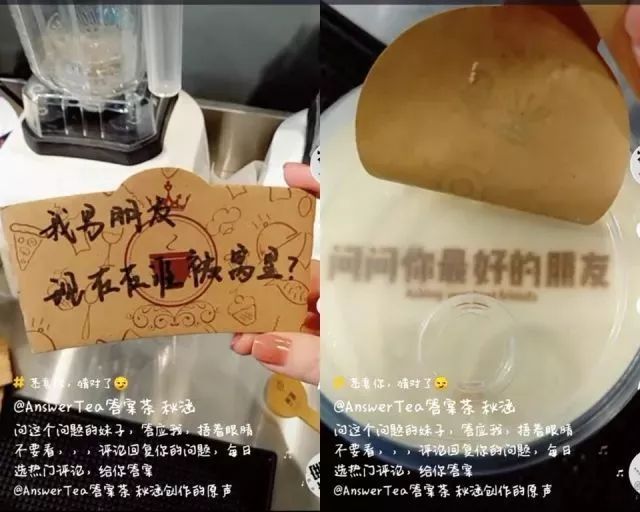 我男朋友
现在在谁被窝里?
恭喜你，猜对了
@AnswerTea答案茶 秋涵
问这个问题的妹子，答应我，捂着眼睛
不要看，，，评论回复你的问题，每日
选热门评论，给你答案
@AnswerTea答案茶 秋涵创作的原声
问问你最好的朋友
恭喜你，猜对了
@AnswerTea答案茶 秋涵
问这个问题的妹子，答应我，捂着眼睛
不要看，，，评论回复你的问题，每日
选热门评论，给你答案
@AnswerTea答案茶 秋涵创作的原声